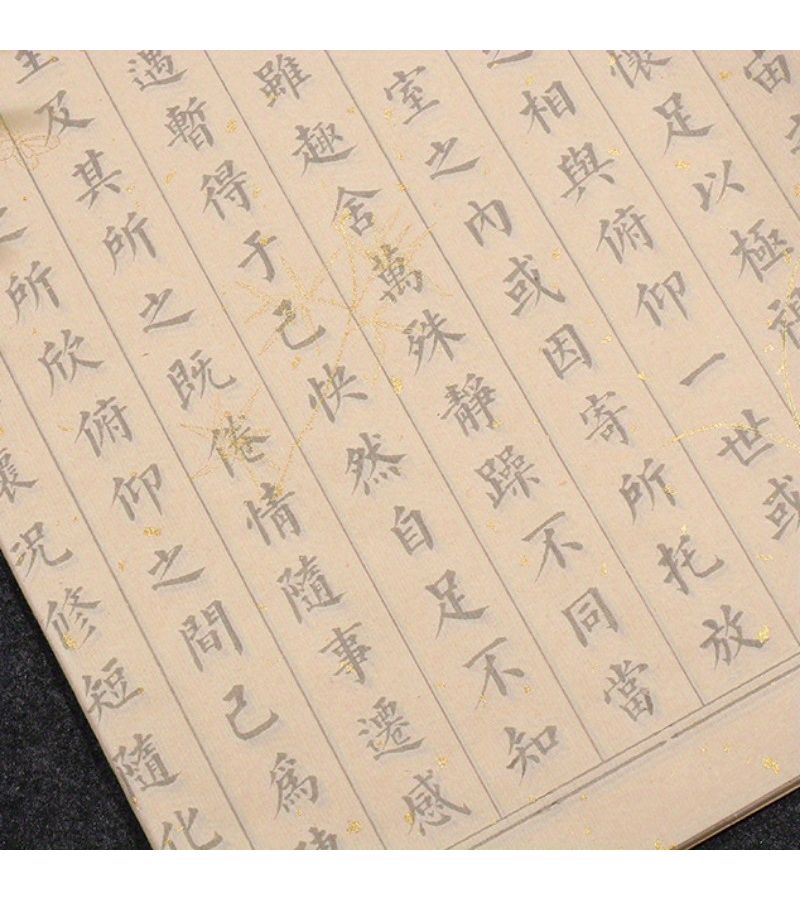 宙
懷足以極視
之相與俯仰一世或
室之內或因寄所托放
雖趣舍萬殊靜躁不同當
遇暫得于己快然自足不知
及其所之既倦情隨事遷感
之所欣俯仰之間己為
懷況修短隨化